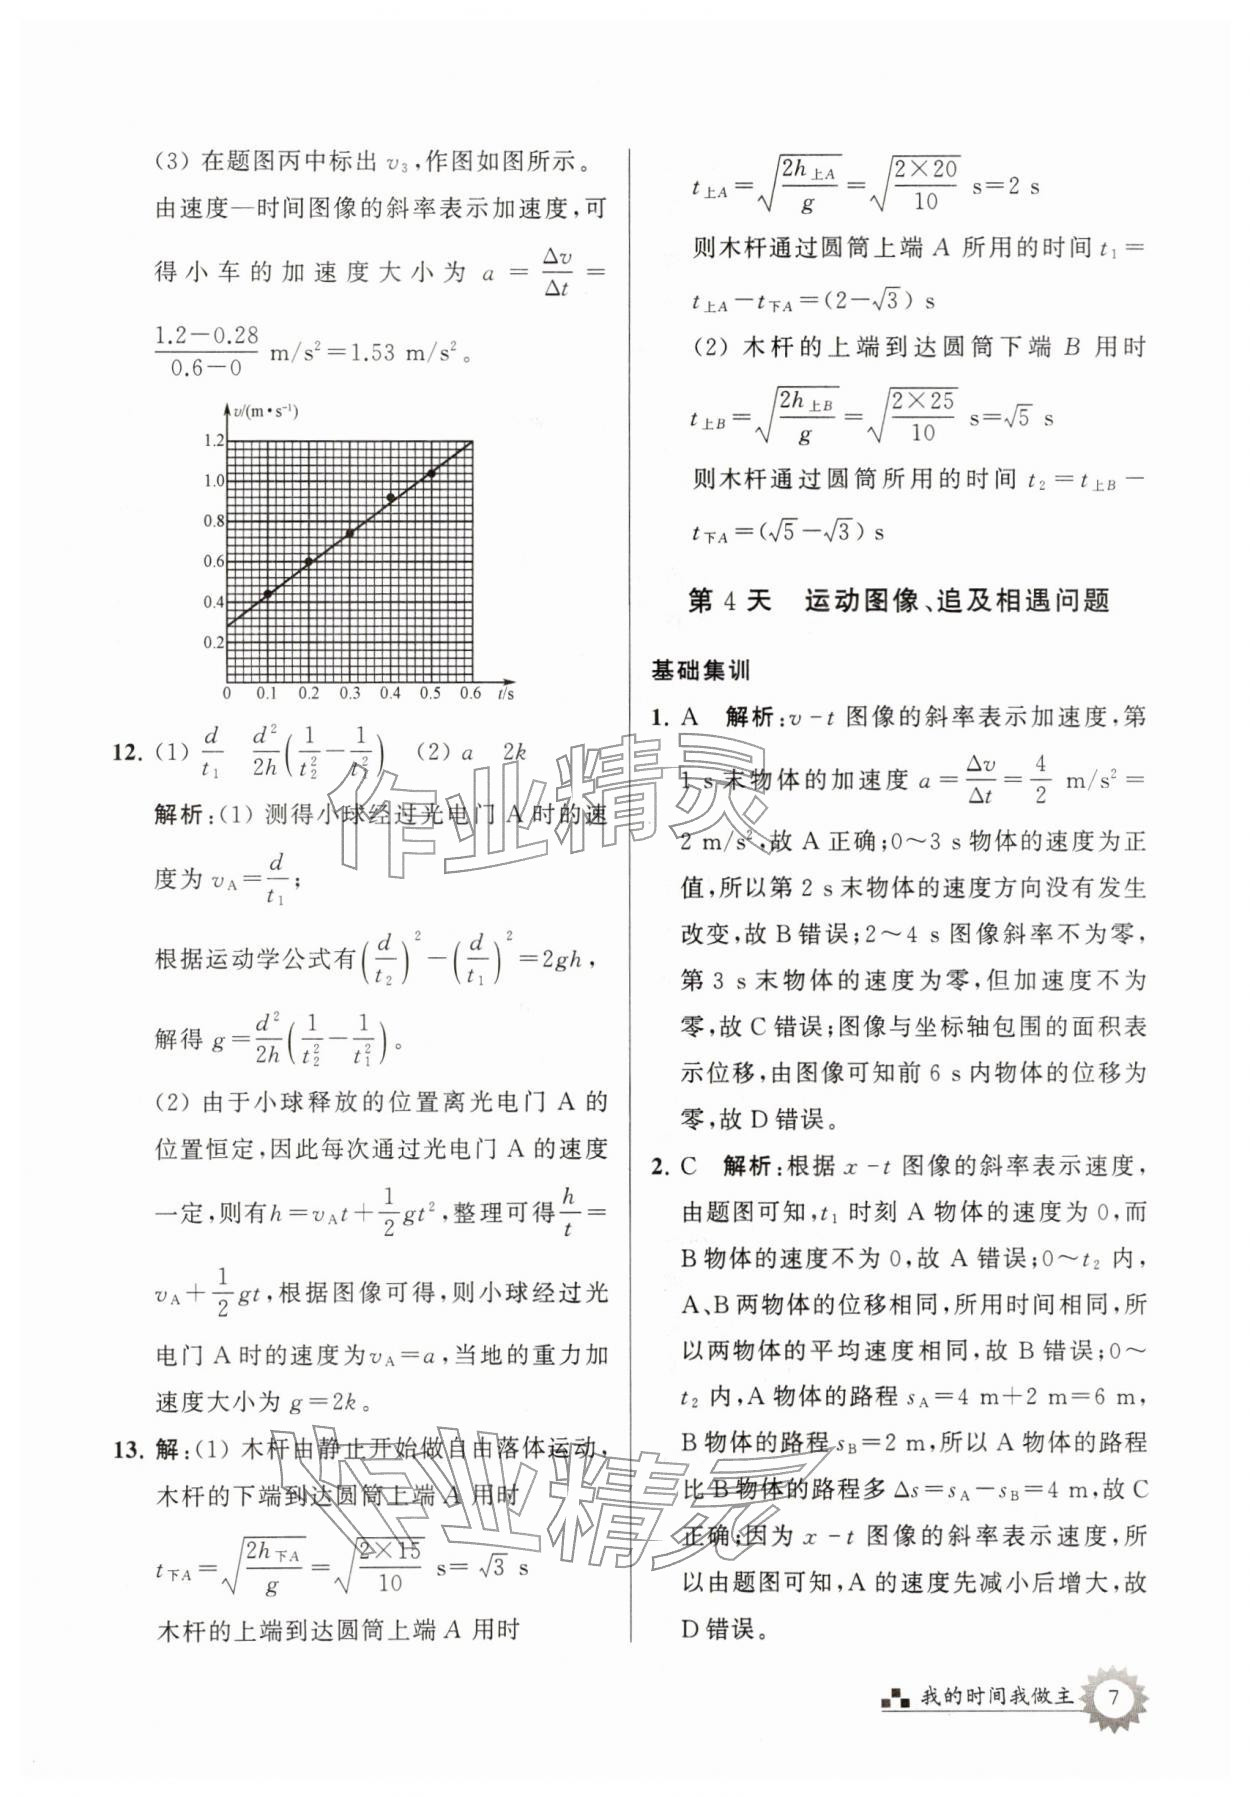 (3) 在题图丙中标出 v₃,作图如图所示。
由速度—时间图像的斜率表示加速度,可
得小车的加速度大小为 a = Δv/Δt =
(1.2-0.28)/(0.6-0) m/s²=1.53 m/s²。
v/(m·s⁻¹)
1.2
1.0
0.8
0.6
0.4
0.2
0 0.1 0.2 0.3 0.4 0.5 0.6 t/s
12. (1) d/t₁ d²/2h(1/t₂²-1/t₁²) (2) a 2k
解析:(1) 测得小球经过光电门 A 时的速
度为 v_A=d/t₁;
根据运动学公式有(d/t₂)²-(d/t₁)²=2gh,
解得 g=d²/2h(1/t₂²-1/t₁²)。
(2) 由于小球释放的位置离光电门 A 的
位置恒定,因此每次通过光电门 A 的速度
一定,则有h=v_At+1/2gt²,整理可得h/t=
v_A+1/2gt,根据图像可得,则小球经过光
电门 A 时的速度为v_A=a,当地的重力加
速度大小为 g=2k。
13. 解:(1) 木杆由静止开始做自由落体运动,
木杆的下端到达圆筒上端 A 用时
t下A=√(2h下A/g)=√(2×15/10) s=√3 s
木杆的上端到达圆筒上端 A 用时
t上A=√(2h上A/g)=√(2×20/10) s=2 s
则木杆通过圆筒上端 A 所用的时间 t₁=
t上A-t下A=(2-√3) s
(2) 木杆的上端到达圆筒下端 B 用时
t上B=√(2h上B/g)=√(2×25/10) s=√5 s
则木杆通过圆筒所用的时间 t₂=t上B-
t下A=(√5-√3) s
第 4 天 运动图像、追及相遇问题
基础集训
1. A 解析:v-t 图像的斜率表示加速度,第
1 s末物体的加速度 a=Δv/Δt=4/2 m/s²=
2 m/s²,故 A 正确;0～3 s物体的速度为正
值,所以第 2 s末物体的速度方向没有发生
改变,故 B 错误;2～4 s图像斜率不为零,
第 3 s末物体的速度为零,但加速度不为
零,故 C 错误;图像与坐标轴包围的面积表
示位移,由图像可知前 6 s内物体的位移为
零,故 D 错误。
2. C 解析:根据 x-t 图像的斜率表示速度,
由题图可知,t₁ 时刻 A 物体的速度为 0,而
B 物体的速度不为 0,故 A 错误;0～t₂ 内,
A、B两物体的位移相同,所用时间相同,所
以两物体的平均速度相同,故 B 错误;0～
t₂ 内,A 物体的路程 s_A=4 m+2 m=6 m,
B 物体的路程 s_B=2 m,所以 A 物体的路程
比 B 物体的路程多 Δs=s_A-s_B=4 m,故 C
正确;因为 x-t 图像的斜率表示速度,所
以由题图可知,A 的速度先减小后增大,故
D 错误。
作业精灵
作业精灵
我的时间我做主 7